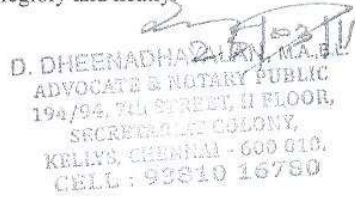 D. DHEENADHAYALAN, M.A.,B.L.
ADVOCATE & NOTARY PUBLIC
194/94, 7th STREET, II FLOOR,
SECRETARIAT COLONY,
KELLYS, CHENNAI - 600 010.
CELL : 93810 16780